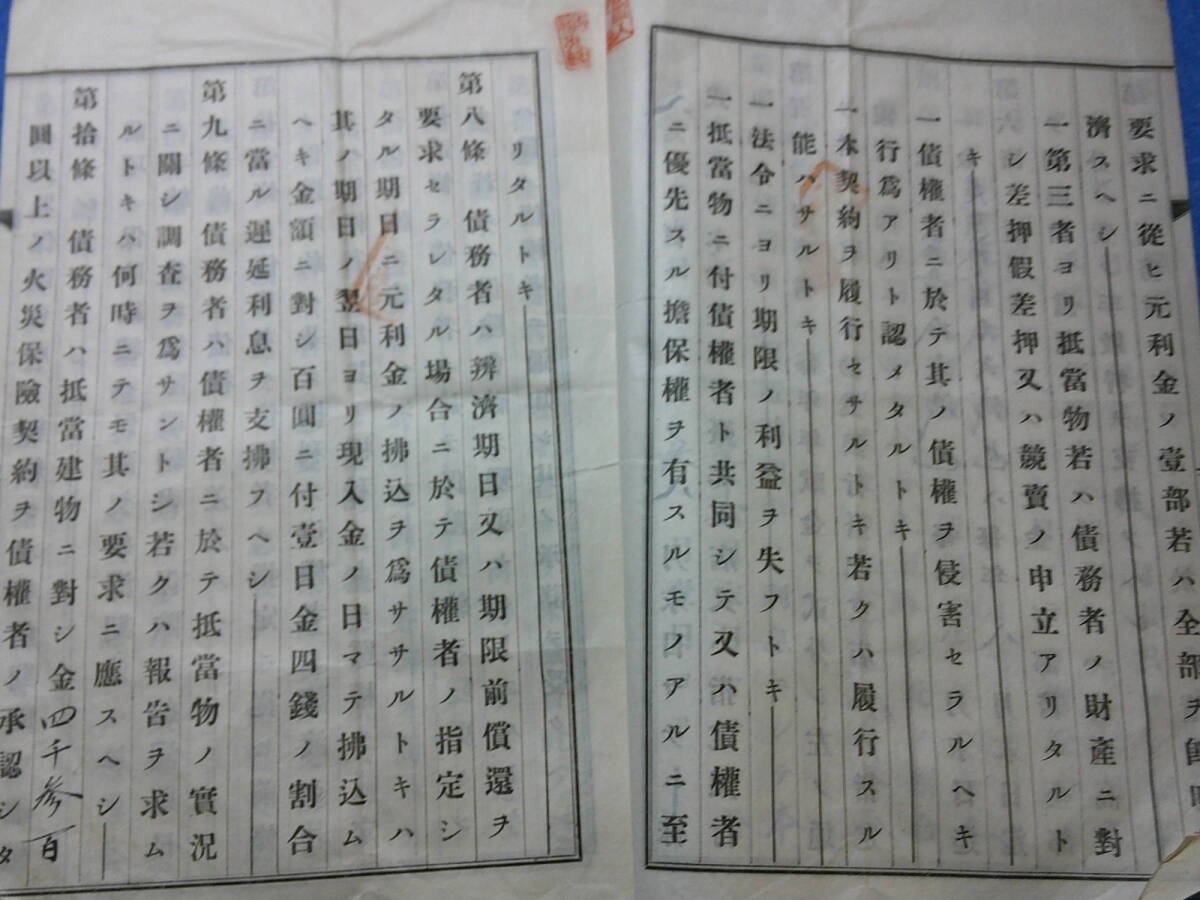 要求ニ從ヒ元利金ノ壹部若ハ全部ヲ
濟スヘシ
一第三者ヨリ抵當物若ハ債務者ノ財產ニ對
シ差押假差押又ハ競賣ノ申立アリタルト
キ
一債權者ニ於テ其ノ債權ヲ侵害セラルヘキ
行爲アリト認メタルトキ
一本契約ヲ履行セサルトキ若クハ履行スル
能ハサルトキ
一法令ニヨリ期限ノ利益ヲ失フトキ
一抵當物ニ付債權者ト共同シテ又ハ債權者
ニ優先スル擔保權ヲ有スルモノアルニ至
リタルトキ
第八條 債務者ハ辨濟期日又ハ期限前償還ヲ
要求セラレタル場合ニ於テ債權者ノ指定シ
タル期日ニ元利金ノ拂込ヲ爲ササルトキハ
其ノ期日ノ翌日ヨリ現入金ノ日マテ拂込ム
ヘキ金額ニ對シ百圓ニ付壹日金四錢ノ割合
ニ當ル遲延利息ヲ支拂フヘシ
第九條 債務者ハ債權者ニ於テ抵當物ノ實況
ニ關シ調査ヲ爲サントシ若クハ報告ヲ求ム
ルトキハ何時ニテモ其ノ要求ニ應スヘシ
第拾條 債務者ハ抵當建物ニ對シ金四千參百
圓以上ノ火災保險契約ヲ債權者ノ承認シタ